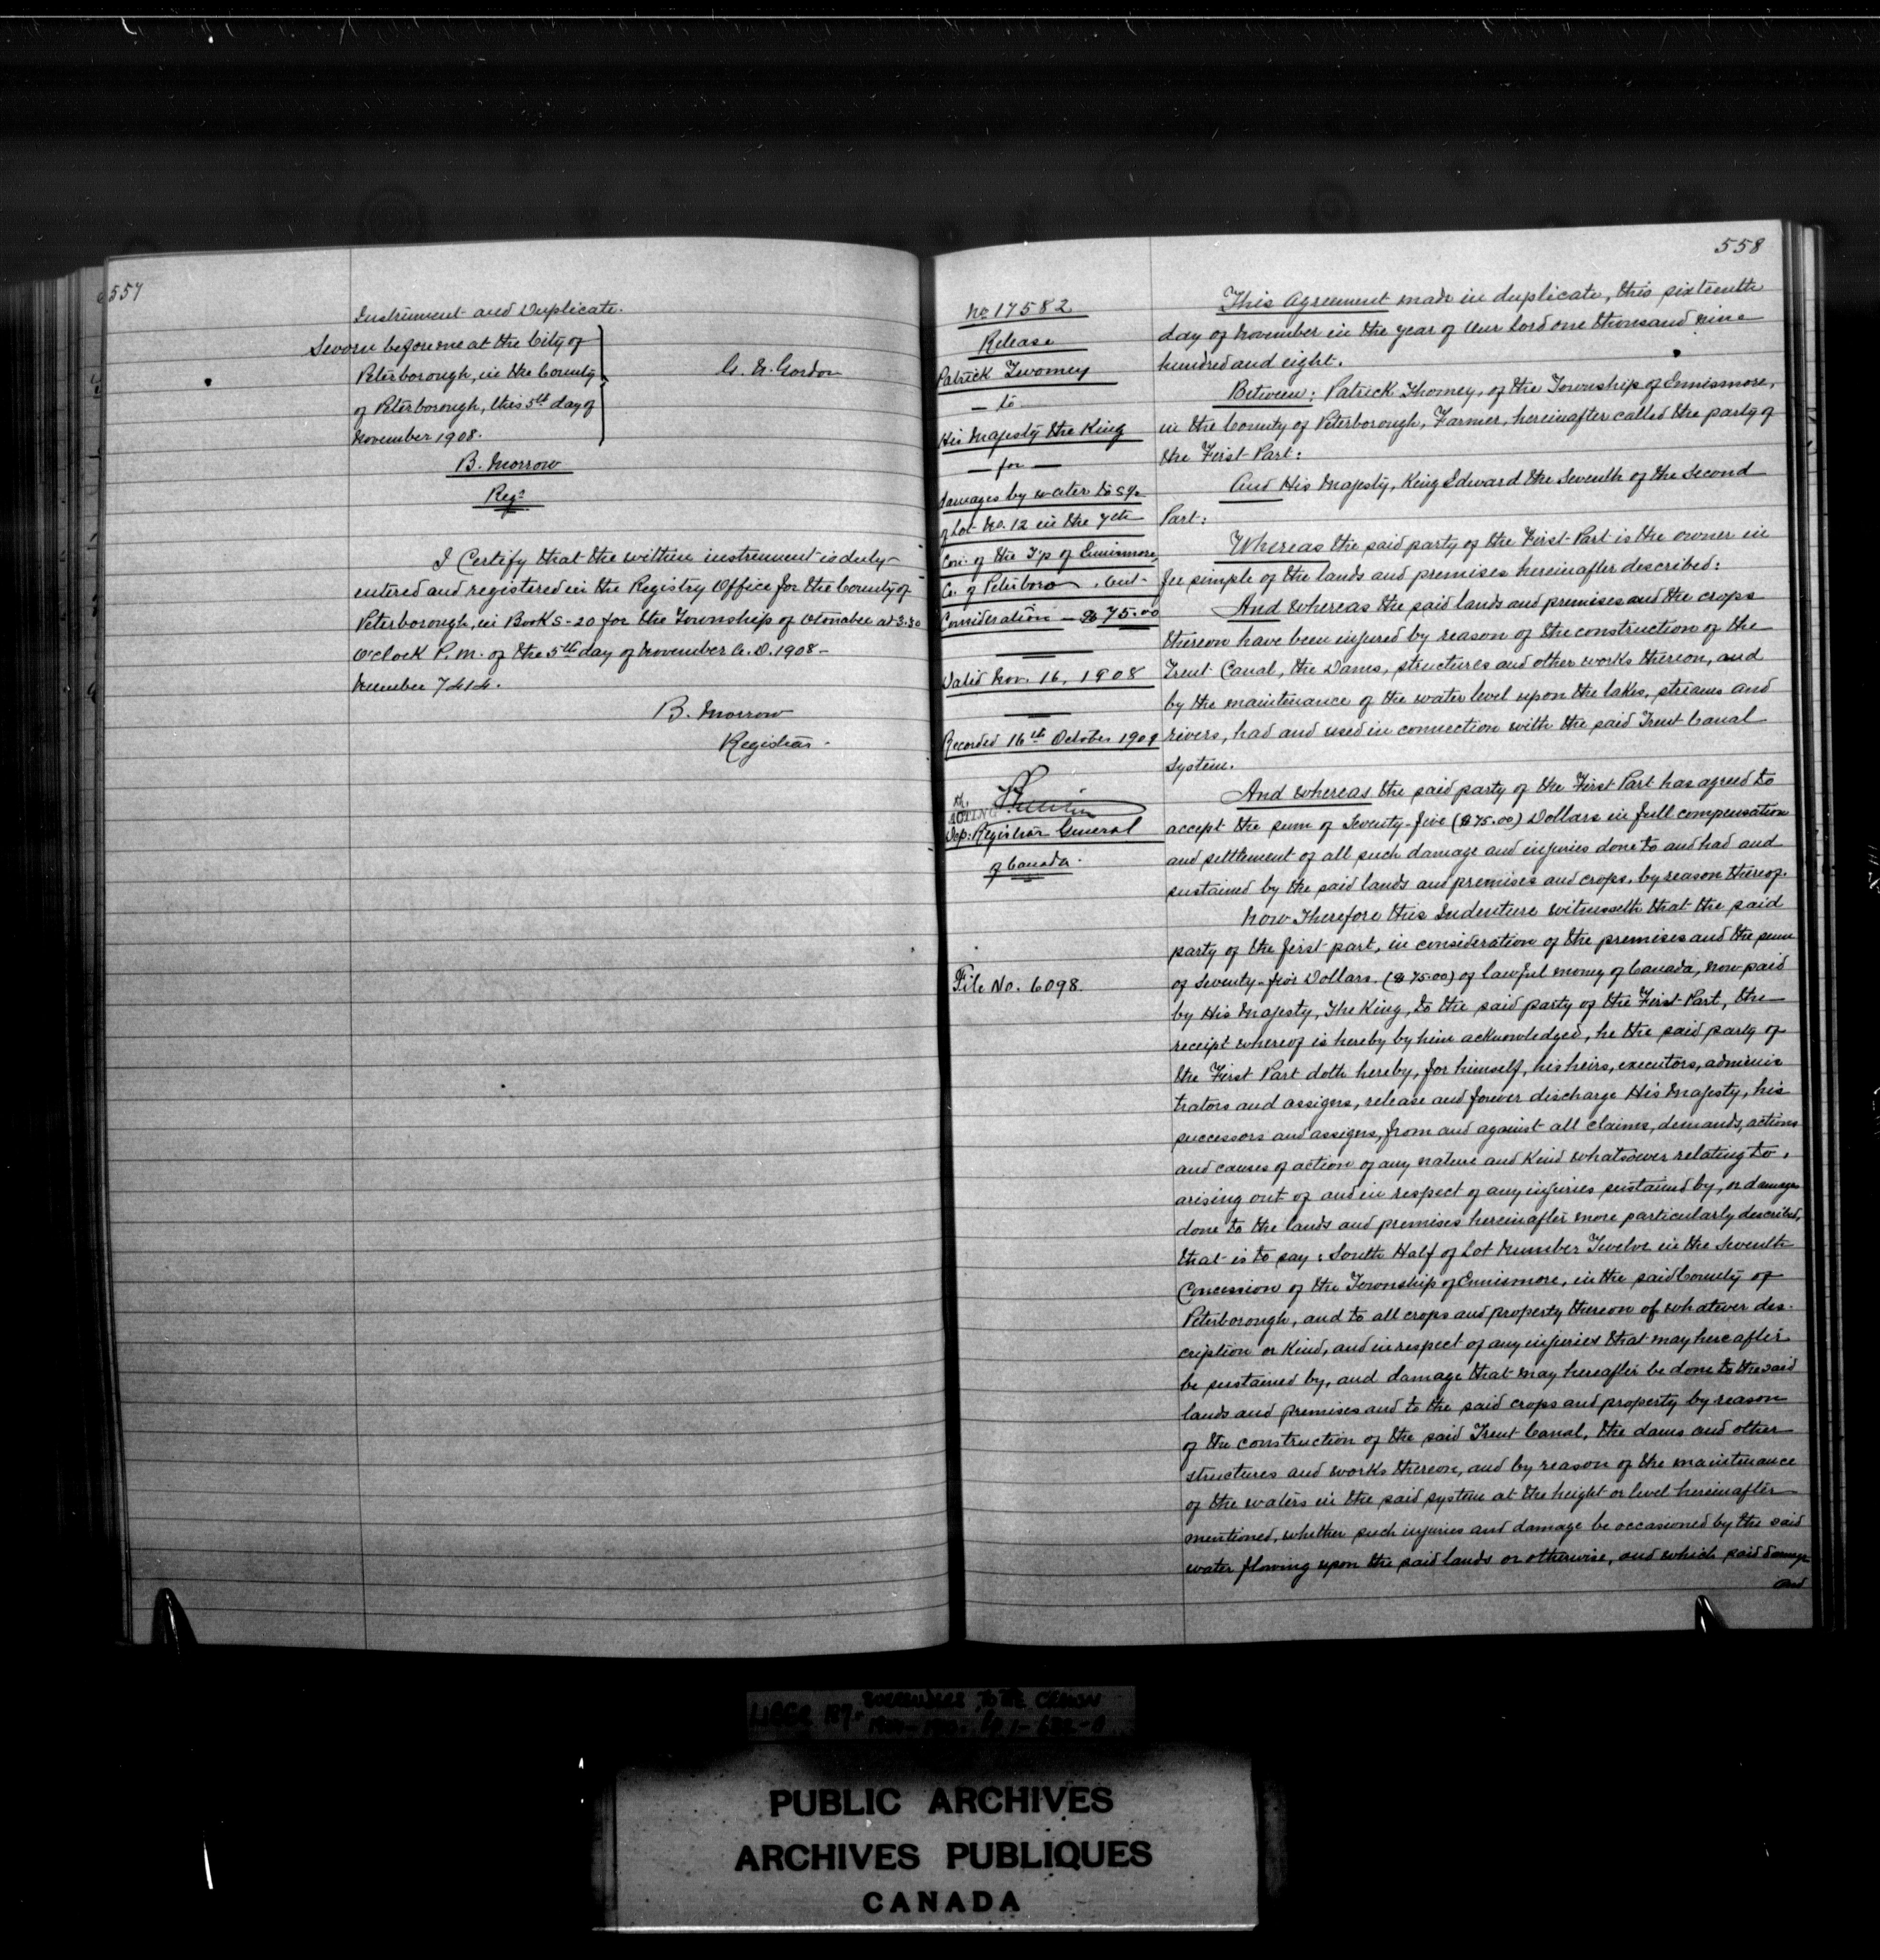 557
Instrument and Duplicate.
Sworn before me at the City of
Peterborough, in the County
of Peterborough, this 5th day of
November 1908.
G. N. Gordon
B. Morrow
Regr
I Certify that the within instrument is duly
entered and registered in the Registry Office for the County of
Peterborough, in Book S-20 for the Township of Otonabee at 3.30
O'clock P.M. of the 5th day of November A.D. 1908 -
Number 7414.
B. Morrow
Registrar.
558
No 17582
Release
Patrick Twomey
- to
His Majesty the King
- for -
damages by water to S½
of Lot No. 12 in the 7th
Con. of the T'p of Ennismore,
Co. of Peterboro, Ont-
Consideration - $75.00
Dated Nov. 16, 1908
Recorded 16th October 1909
ACTING
Dep: Registrar General
of Canada.
File No. 6098.
This Agreement made in duplicate, this sixteenth
day of November in the year of Our Lord one thousand nine
hundred and eight.
Between: Patrick Thomey, of the Township of Ennismore,
in the County of Peterborough, Farmer, hereinafter called the party of
the First Part:
And His Majesty, King Edward the Seventh of the Second
Part:
Whereas the said party of the First Part is the owner in
fee simple of the lands and premises hereinafter described:
And whereas the said lands and premises and the crops
thereon have been injured by reason of the construction of the
Trent Canal, the Dams, structures and other works thereon, and
by the maintenance of the water level upon the lakes, streams and
rivers, had and used in connection with the said Trent Canal
system.
And whereas the said party of the First Part has agreed to
accept the sum of Seventy-five ($75.00) Dollars in full compensation
and settlement of all such damage and injuries done to and had and
sustained by the said lands and premises and crops, by reason thereof.
Now Therefore this Indenture witnesseth that the said
party of the first part, in consideration of the premises and the sum
of Seventy-five Dollars. ($75.00) of lawful money of Canada, now paid
by His Majesty, The King, to the said party of the First Part, the
receipt whereof is hereby by him acknowledged, he the said party of
the First Part doth hereby, for himself, his heirs, executors, adminis
trators and assigns, release and forever discharge His Majesty, his
successors and assigns, from and against all claims, demands, actions
and causes of action of any nature and kind whatsoever relating to,
arising out of and in respect of any injuries sustained by, or damages
done to the lands and premises hereinafter more particularly described,
that is to say: South Half of Lot Number Twelve in the Seventh
Concession of the Township of Ennismore, in the said County of
Peterborough, and to all crops and property thereon of whatever des-
cription or kind, and in respect of any injuries that may hereafter
be sustained by, and damage that may hereafter be done to the said
lands and premises and to the said crops and property by reason
of the construction of the said Trent Canal, the dams and other
structures and works thereon, and by reason of the maintenance
of the waters in the said system at the height or level hereinafter
mentioned, whether such injuries and damage be occasioned by the said
water flowing upon the said lands or otherwise, and which said damage
and
SURRENDERS TO THE CROWN
PUBLIC ARCHIVES
ARCHIVES PUBLIQUES
CANADA